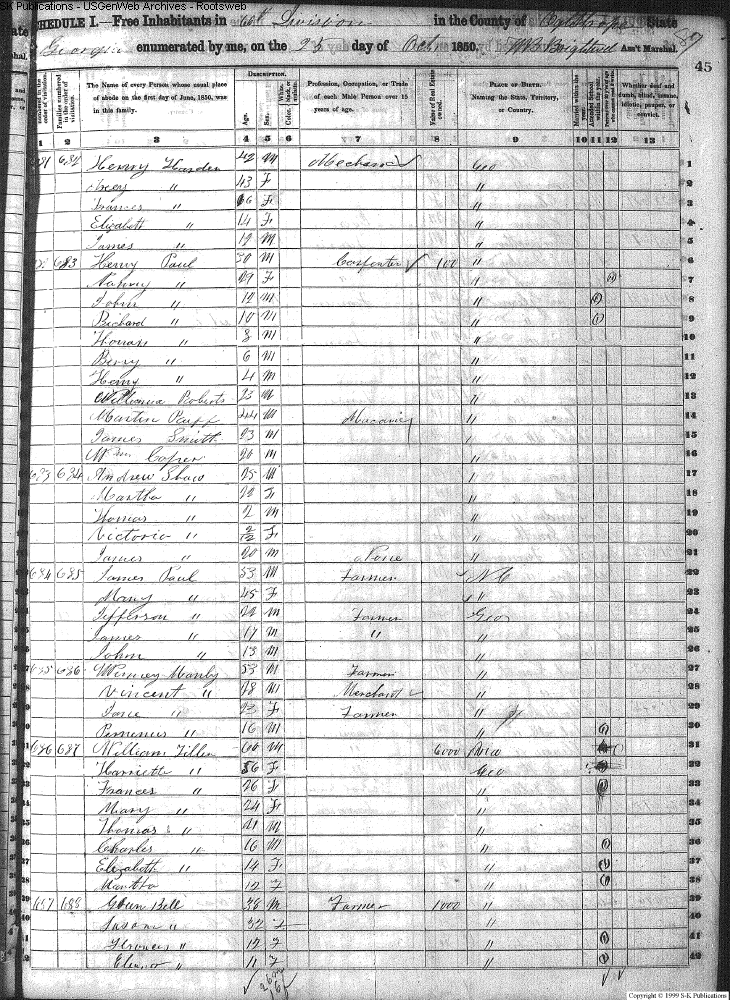 S-K Publications - USGenWeb Archives - Rootsweb
SCHEDULE I.—Free Inhabitants in 6th Division in the County of State
Georgia enumerated by me, on the 25 day of Octr 1850. Ass't Marshal. 89
45
Dwelling-houses numbered in the order of visitation.
Families numbered in the order of visitation.
The Name of every Person whose usual place of abode on the first day of June, 1850, was in this family.
Description.
Age.
Sex.
White, black, or mulatto.
Color.
Profession, Occupation, or Trade of each Male Person over 15 years of age.
Value of Real Estate owned.
Place of Birth.
Naming the State, Territory, or Country.
Married within the year.
Attended School within the year.
Persons over 20 y'rs of age who cannot read & write.
Whether deaf and dumb, blind, insane, idiotic, pauper, or convict.
1 2 3 4 5 6 7 8 9 10 11 12 13
681 682 Henry Harden 42 M Mechanic Geo 1
" 43 F " 2
Frances " 16 F " 3
Elizabeth " 14 F " 4
James " 12 M " 5
683 Henry Paul 30 M Carpenter 100 " 6
Nancy " 29 F " 7
John " 12 M " 8
Richard " 10 M " 9
Thomas " 8 M " 10
Berry " 6 M " 11
Henry " 4 M " 12
Roberts 23 M " 13
Martin 44 M " 14
James Smith 23 M " 15
Wm 20 M " 16
683 684 Andrew Shaw 25 M " 17
Martha " 22 F " 18
Thomas " 2 M " 19
Victoria " 2/12 F " 20
James " 20 M None " 21
684 685 James Paul 53 M Farmer N C 22
Mary " 45 F " 23
Jefferson " 22 M Farmer Geo 24
James " 17 M " " 25
John " 13 M " 26
685 686 Manly 53 M Farmer " 27
Vincent " 28 M Merchant " 28
Jane " 23 F Farmer " 29
" 16 M " 30
686 687 William 66 M 6000 31
Harriett " 56 F Geo 32
Frances " 26 F " 33
Mary " 24 F " 34
Thomas " 21 M " 35
Charles " 16 M " 36
Elizabeth " 14 F " 37
Martha 12 F " 38
687 688 Green Bell 38 M Farmer 1000 " 39
Susan " 32 F " 40
Frances " 12 F " 41
" 11 F " 42
Copyright © 1999 S-K Publications